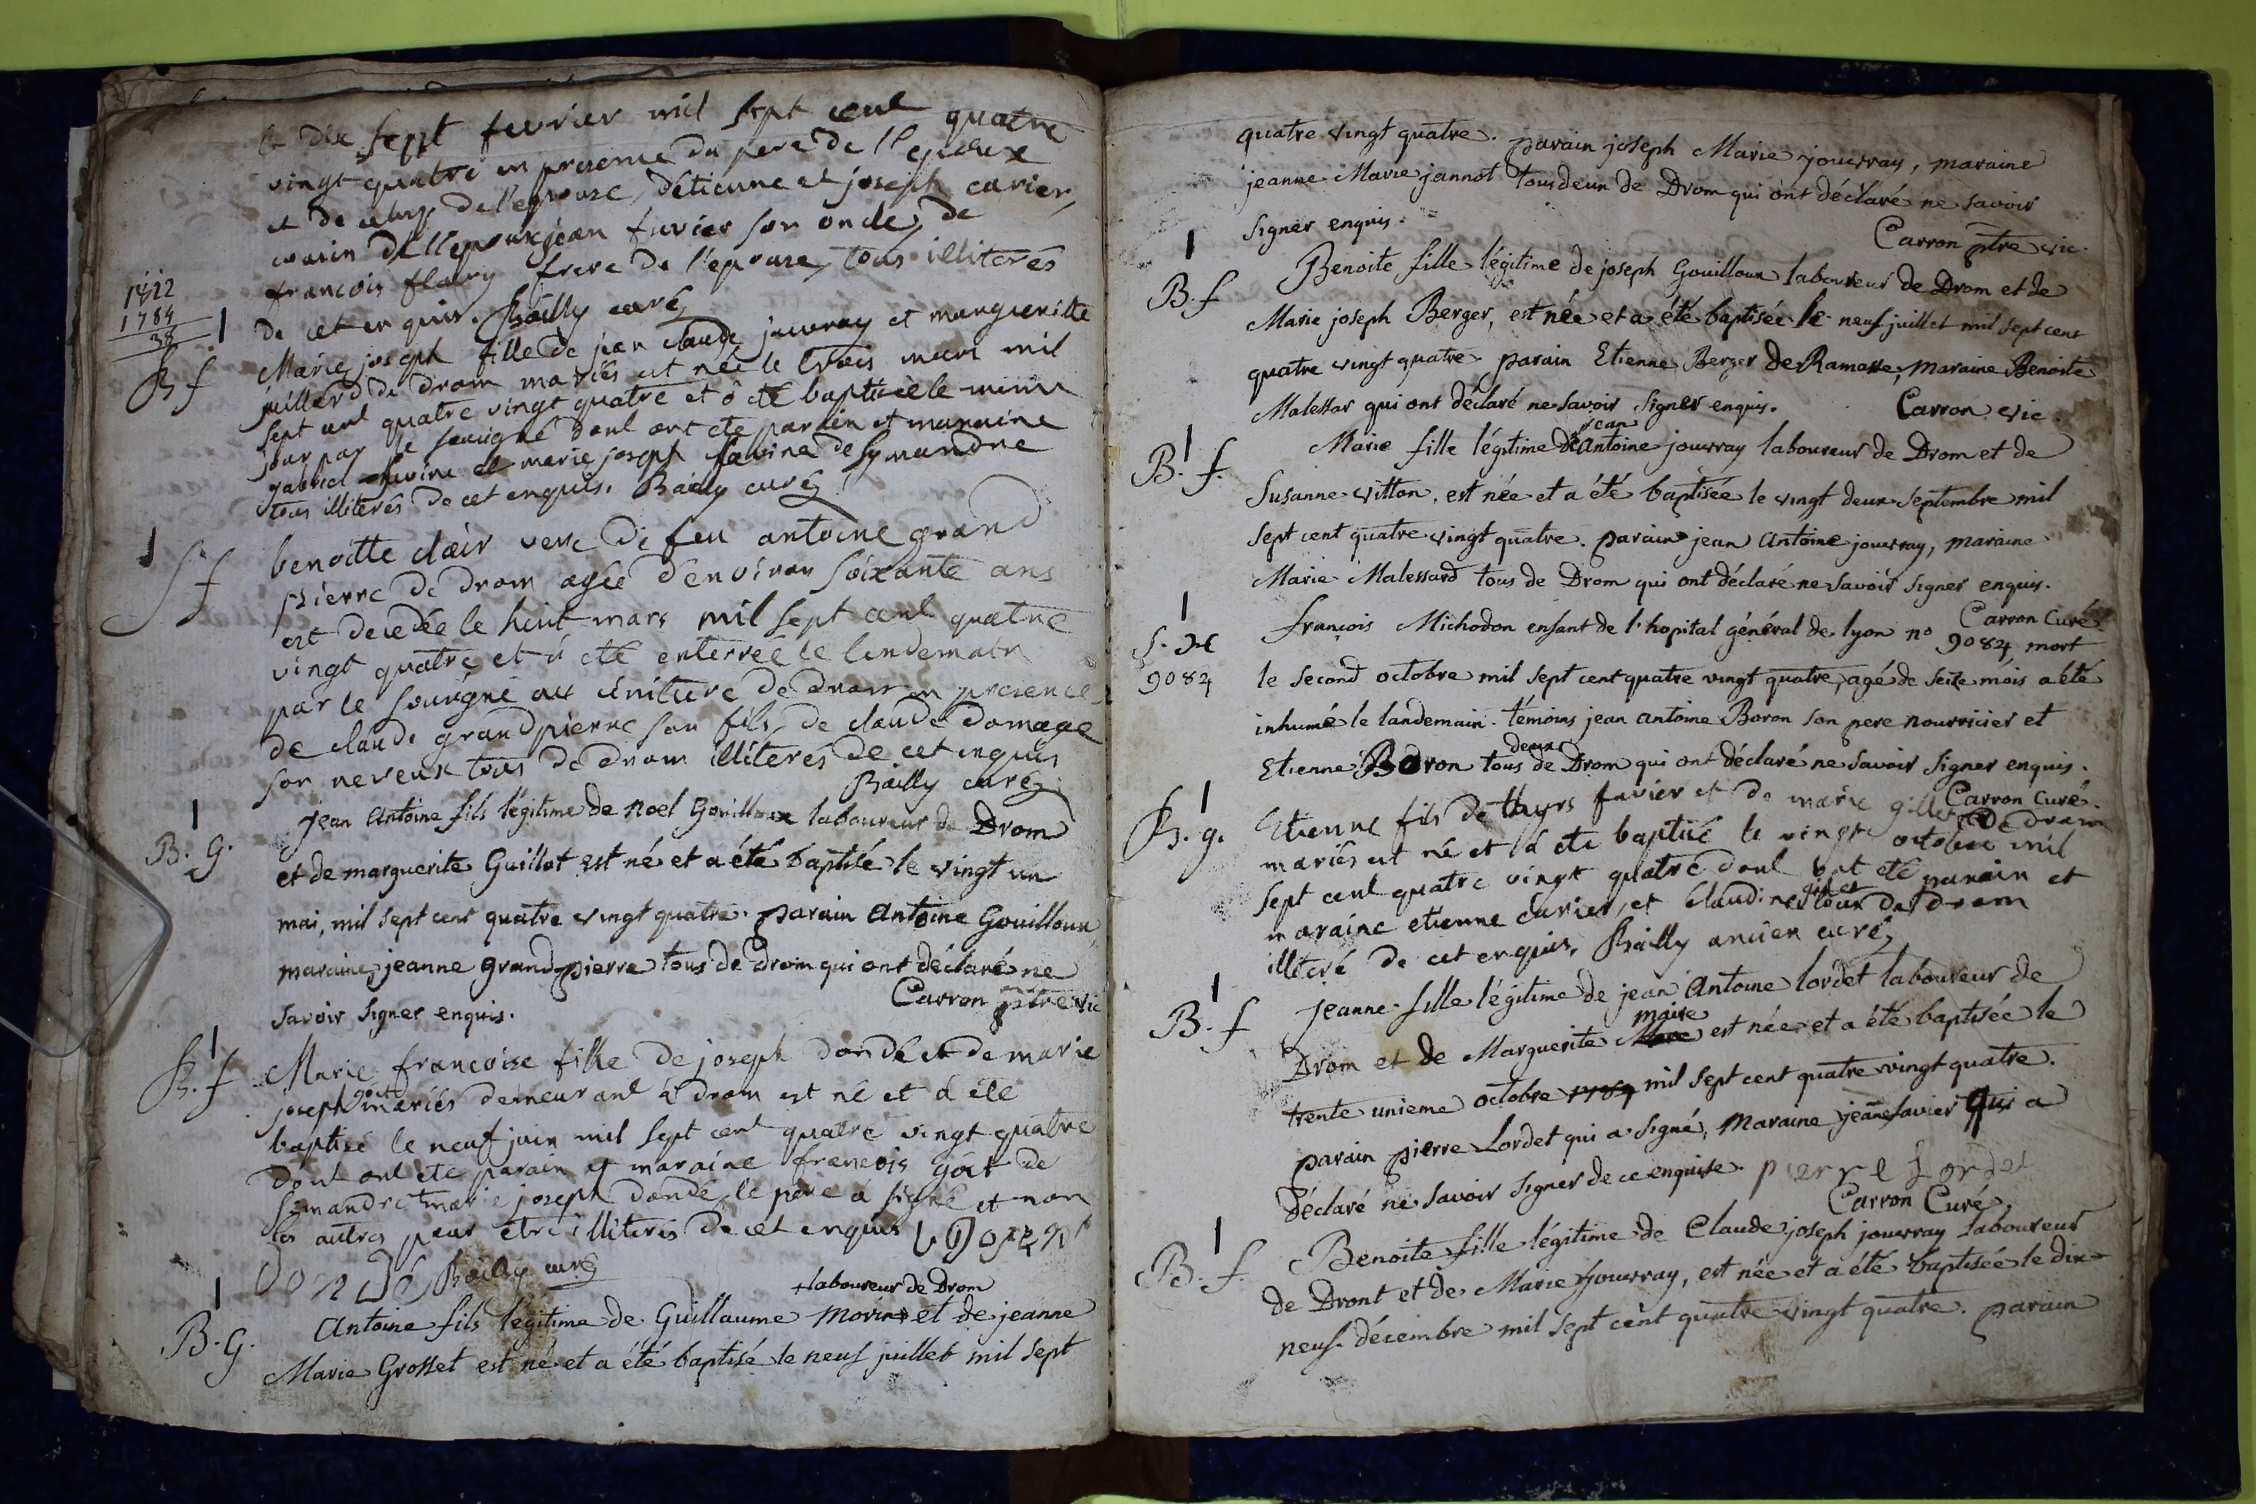 le dix sept fevrier mil sept cent quatre
vingt quatre en presence du pere de l'epoux
et de celuy de l'epouse, d'etienne et joseph cavier,
cousin de l'epoux jean fuvier son oncle, de
francois fleury frere de l'epouse, tous illiterés
de cet enquis. Bailly curé
1822
1784
38
1
B f
Marie joseph fille de jean claude jouvray et margueritte
juillerd de drom mariés est née le trois mars mil
sept cent quatre vingt quatre et a eté baptisée le meme
jour par le sousigné dont ont eté parrein et marraine
gabriel favine et marie joseph favine de symandre
tous illiterés de cet enquis. Bailly curé
1
S f
benoitte clair veve de feu antoine grand
pierre de drom agée d'environ soixante ans
est decedée le huit mars mil sept cent quatre
vingt quatre et a eté enterrée le lendemain
par le sousigné au cimitiere de drom en presence
de claude grandpierre son fils, de claude domage
son neveux tous de drom illiterés de cet enquis
Bailly curé
1
B. G.
jean Antoine fils légitime de Noel Gouilloux laboureur de Drom
et de marguerite Guillot est né et a été baptisé le vingt un
mai, mil sept cent quatre vingt quatre. parain Antoine Gouilloux,
maraine, jeanne grandpierre tous de drom qui ont déclaré ne
savoir signer enquis.
Carron ptre vic
1
B. f
Marie francoise fille de joseph dondé et de marie
joseph goit mariés demeurant à drom est né et a eté
baptisé le neuf juin mil sept cent quatre vingt quatre
dont ont eté parain et maraine francois goit de
simandre marie joseph dondé, le pere a signé et non
les autres pour etre illiterés de cet enquis
Dondé Bailly curé
1
B. G.
+ laboureur de Drom
Antoine fils légitime de Guillaume Morin + et de jeanne
Marie Grosset est né et a été baptisé le neuf juillet mil sept
quatre vingt quatre. parain joseph Marie jouvray, maraine
jeanne Marie jannot tous deux de Drom qui ont déclaré ne savoir
signer enquis.
Carron ptre vic.
1
B. f
Benoite fille légitime de joseph Gouilloux laboureur de Drom et de
Marie joseph Berger, est née et a été baptisée le neuf juillet mil sept cent
quatre vingt quatre. parain Etienne Berger de Ramasse, maraine Benoite
Malessar qui ont déclaré ne savoir signer enquis.
Carron vic.
1
B. f.
jean
Marie fille légitime de Antoine jouvray laboureur de Drom et de
Susanne vitton, est née et a été baptisée le vingt deux septembre mil
sept cent quatre vingt quatre. parain jean Antoine jouvray, maraine
Marie Malessard tous de Drom qui ont déclaré ne savoir signer enquis.
Carron Curé
1
S.
9084
françois Michodon enfant de l'hopital général de lyon n° 9084, mort
le second octobre mil sept cent quatre vingt quatre, agé de seize mois a été
inhumé le landemain. témoins jean antoine Boron son pere nourricier et
deux
Etienne Boron tous de Drom qui ont déclaré ne savoir signer enquis.
Carron Curé.
1
B. g.
Etienne fils de thyrs fuvier et de marie gillet de drom
mariés est né et a ete baptisé le vingt octobre mil
sept cent quatre vingt quatre dont ont eté parain et
maraine etienne cuvier, et claudine gillet tous de drom
illiteré de cet enquis, Bailly ancien curé
1
B. f
jeanne fille légitime de jean Antoine lordet laboureur de
maire
Drom et de Marguerite est née et a été baptisée le
trente unieme octobre 1784 mil sept cent quatre vingt quatre.
parain pierre Lordet qui a signé, maraine jeanne favier qui a
déclaré ne savoir signer de ce enquise. pierre Lordet
Carron Curé
1
B. f.
Benoite fille légitime de Claude joseph jouvray laboureur
de Dront et de Marie jouvray, est née et a été baptisée le dix
neuf décembre mil sept cent quatre vingt quatre. parain